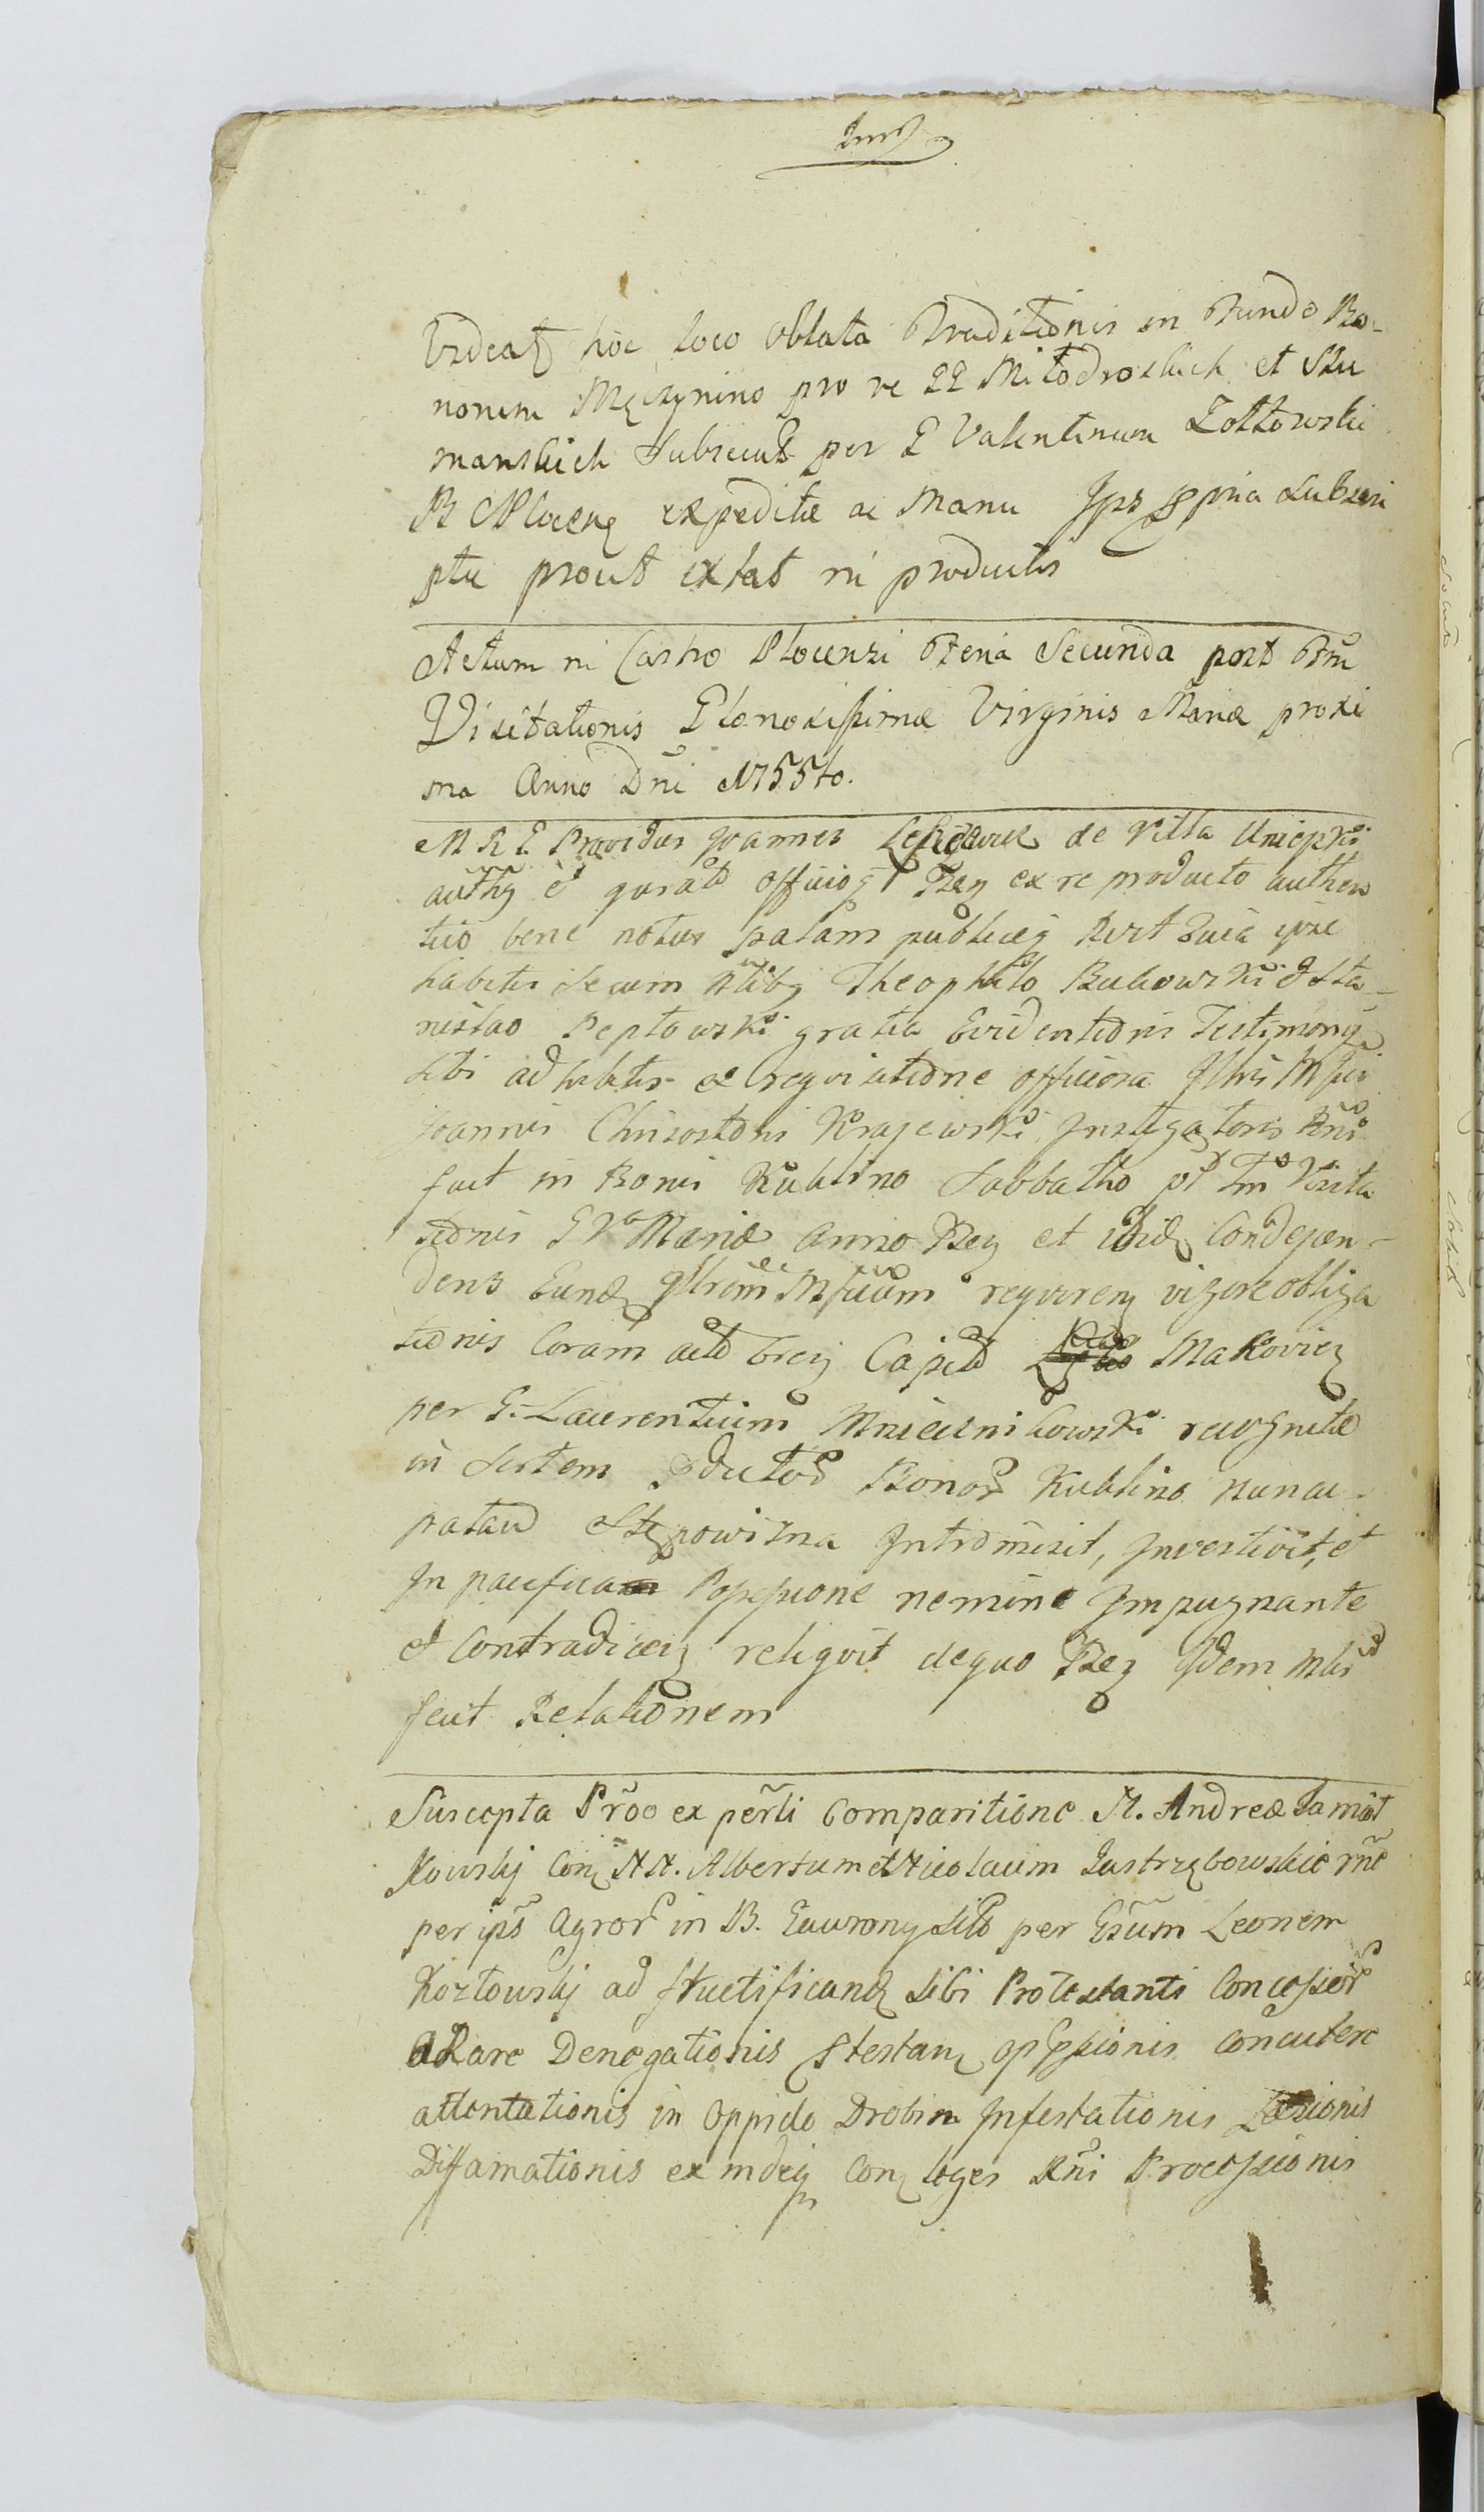 Videat hoc loco Oblata Traditionis in Fundo Bo-
norum Męczynino pro re GG Miłodroskich et Szu
manskich Subsecut per G Valentinum Zołtowski
B C Plocen expeditæ ac Manu Ips ppria Subscri
ptæ prout extat in productis
Actum in Castro Plocensi Feria Secunda post Ftum
Visitationis Gloriosissimæ Virginis Mariæ proxi
ma Anno Dni 1755to.
M R G Providus Joannes de Villa Uniepki
authen et jurato officioq Pren ex re producto authen
tico bene notus palam publiceq Rvit Quia ipse
habitis Secum Nblibq Theophilo Bukowski et Sta-
nislao Peptowski gratia Evidentioris Testimonij
Sibi adhibitis et reqvisitione officiosa Illris Mfci
Joannis Chrisostomi Krajewski Instigatoris Rni
fuit in Bonis Kublino Sabbatho pt Ftm Visita
tionis G V Mariæ Anno Pren et ibid Condepen-
dens Eund Illrem Mficum reqviren vigore obliga
tionis Coram actis Capit Makovien
per G. Laurentium Mniewnikowski recognitæ
in Sortem Pdictor Bonor Kublino nuncu-
patam Stępowizna Intromisit, Investivit, et
In pacifica Possessione nemine Impugnante
et Contradicen reliqvit de quo Pren Idem Mlis
fecit Relationem
Suscepta Prõe ex persli Comparitione N. Andreæ Samoł
Kowski Con NN. Albertum et Nicolaum Jastrzębowskie rñe
per ips Agror in B. Gawrony Sitis per Gsum Leonem
Kozłowski ad fructificand Sibi Protestanti Concessor
Denegationis oppssionis
attentationis in Oppido Drobin Infestationis Læsionis
Diffamationis ex indeq Con leges Rni Processionis